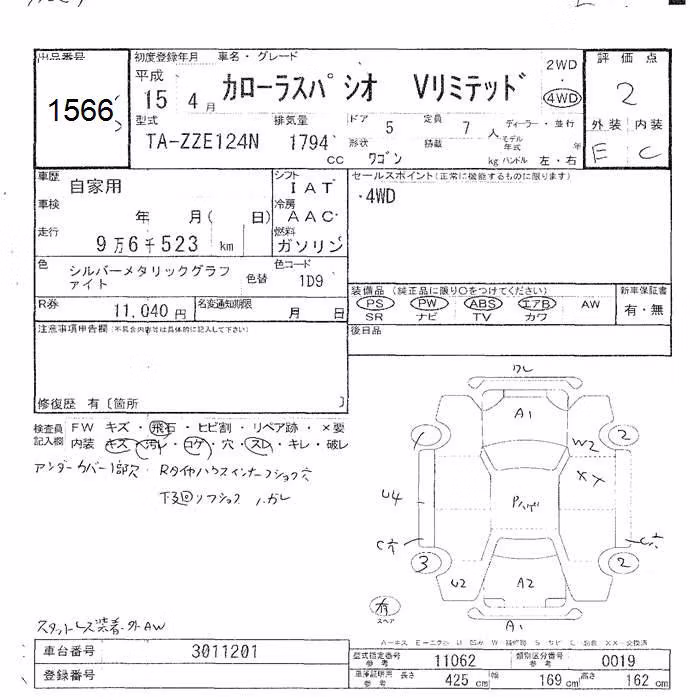 出品番号
1566
初度登録年月 車名・グレード
平成 15 4月
カローラスパシオ Vリミテッド
2WD
・
4WD
評価点
2
外装 内装
E C
型式 排気量 ドア 定員 ディーラー・並行
TA-ZZE124N 1794 cc 5 7人
形状 積載 モデル年式 年
ワゴン kg ハンドル 左・右
車歴 自家用
シフト IAT
車検 年 月( 日)
冷房 AAC
走行 9万6千523km
燃料 ガソリン
色 シルバーメタリックグラファイト
色替
色コード 1D9
R券 11,040円
名変通知期限 月 日
セールスポイント(正常に機能するものに限ります)
・4WD
装備品(純正品に限り○をつけてください)
PS PW ABS エアB AW
SR ナビ TV カワ
新車保証書
有・無
後日品
注意事項申告欄(不具合内容等は具体的に記入して下さい)
修復歴 有〔箇所 〕
検査員記入欄
FW キズ・飛石・ヒビ割・リペア跡・×要
内装 キズ・汚レ・コゲ・穴・スレ・キレ・破レ
アンダーカバー1部欠
下廻りソフショフ ハガレ
スタットレス装着・外AW
クレ
A1
W2
XX
2
U4
Pハゲ
C穴
3
2
U2
A2
A1
有
スペア
車台番号 3011201
登録番号
型式指定番号 参考 11062
類別区分番号 参考 0019
車庫証明用 参考 長さ 425cm 幅 169cm 高さ 162cm